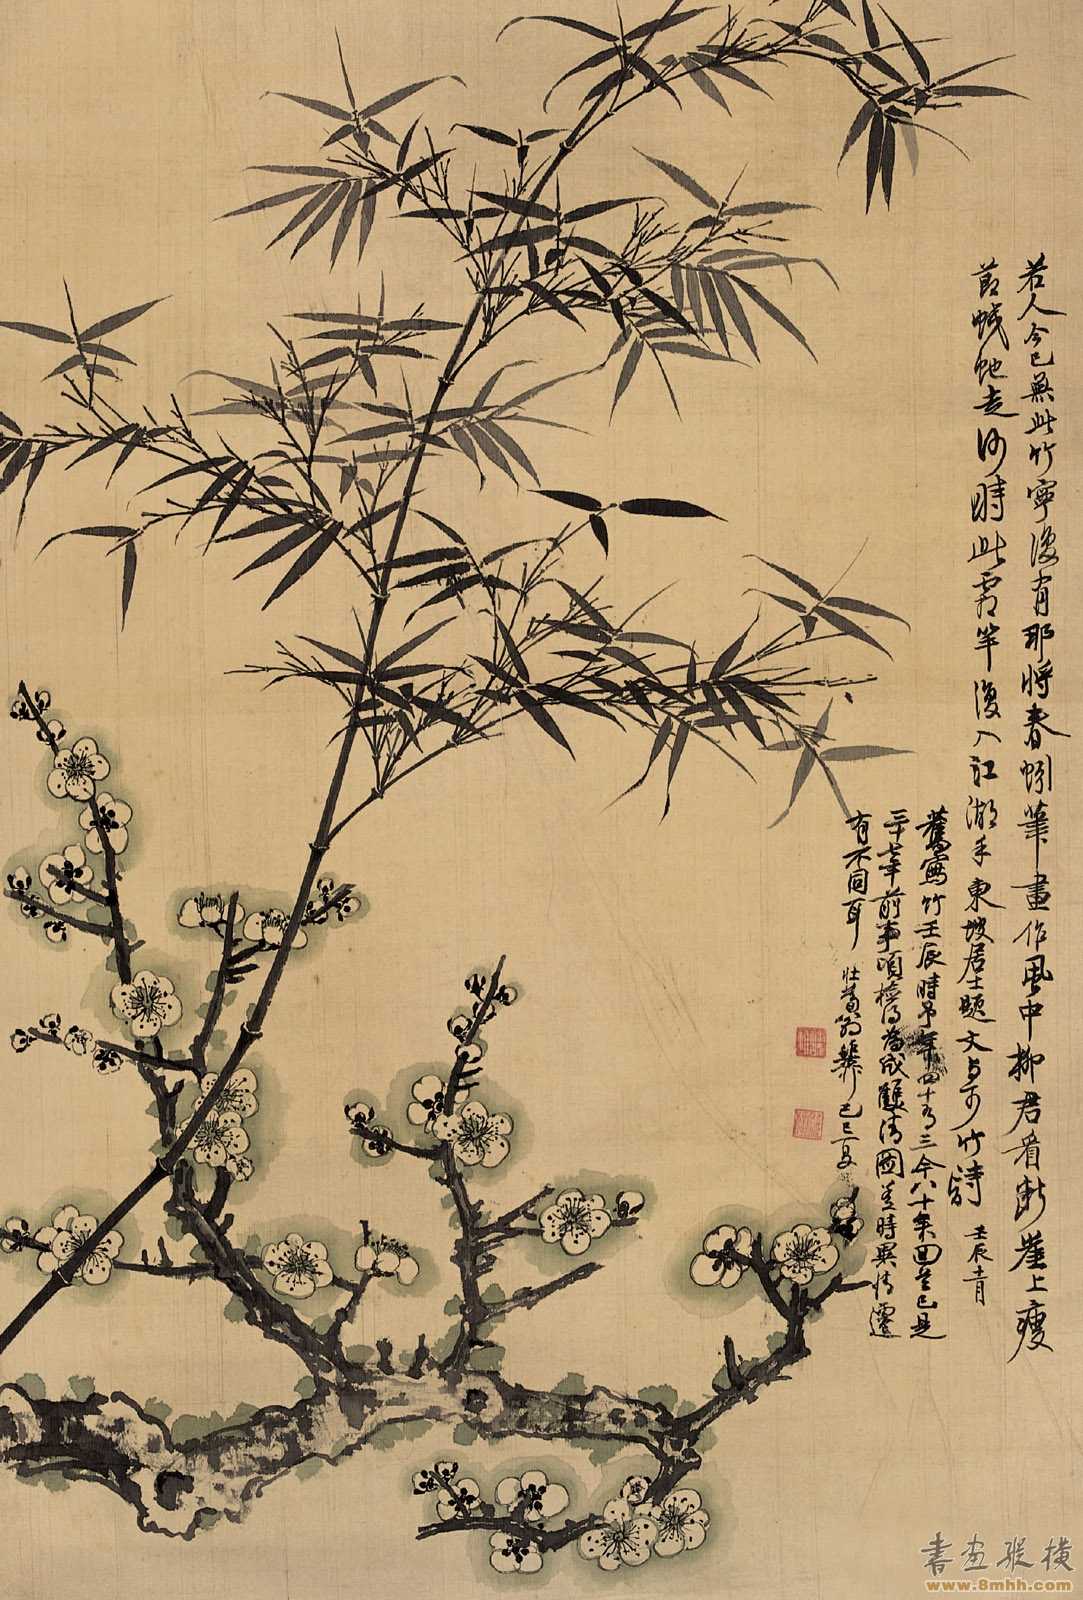 若人今已無此竹寧復有那將春蚓筆畫作風中柳君看斷崖上瘦
節蛟蛇走何時此霜竿復入江湖手東坡居士題文與可竹詩 壬辰青
舊寫竹壬辰時予年四十有三今八十矣回首已是
三十七年前事頃檢得為成雙清圖並時異情遷
有不同耳 壯暮翁稚 己巳夏
書畫縱橫
www.8mhh.com